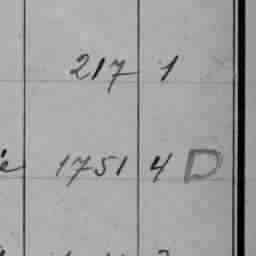 217 1
1751 4 D